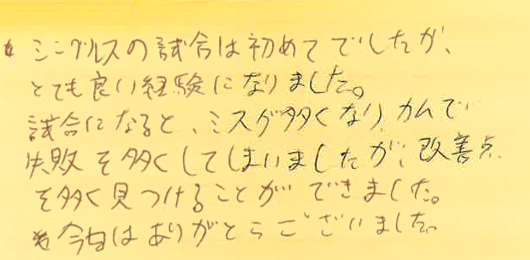 シングルスの試合は初めてでしたが、
とても良い経験になりました。
試合になると、ミスが多くなり、カムで
失敗を多くしてしまいましたが、改善点
を多く見つけることができました。
今日はありがとうございました。